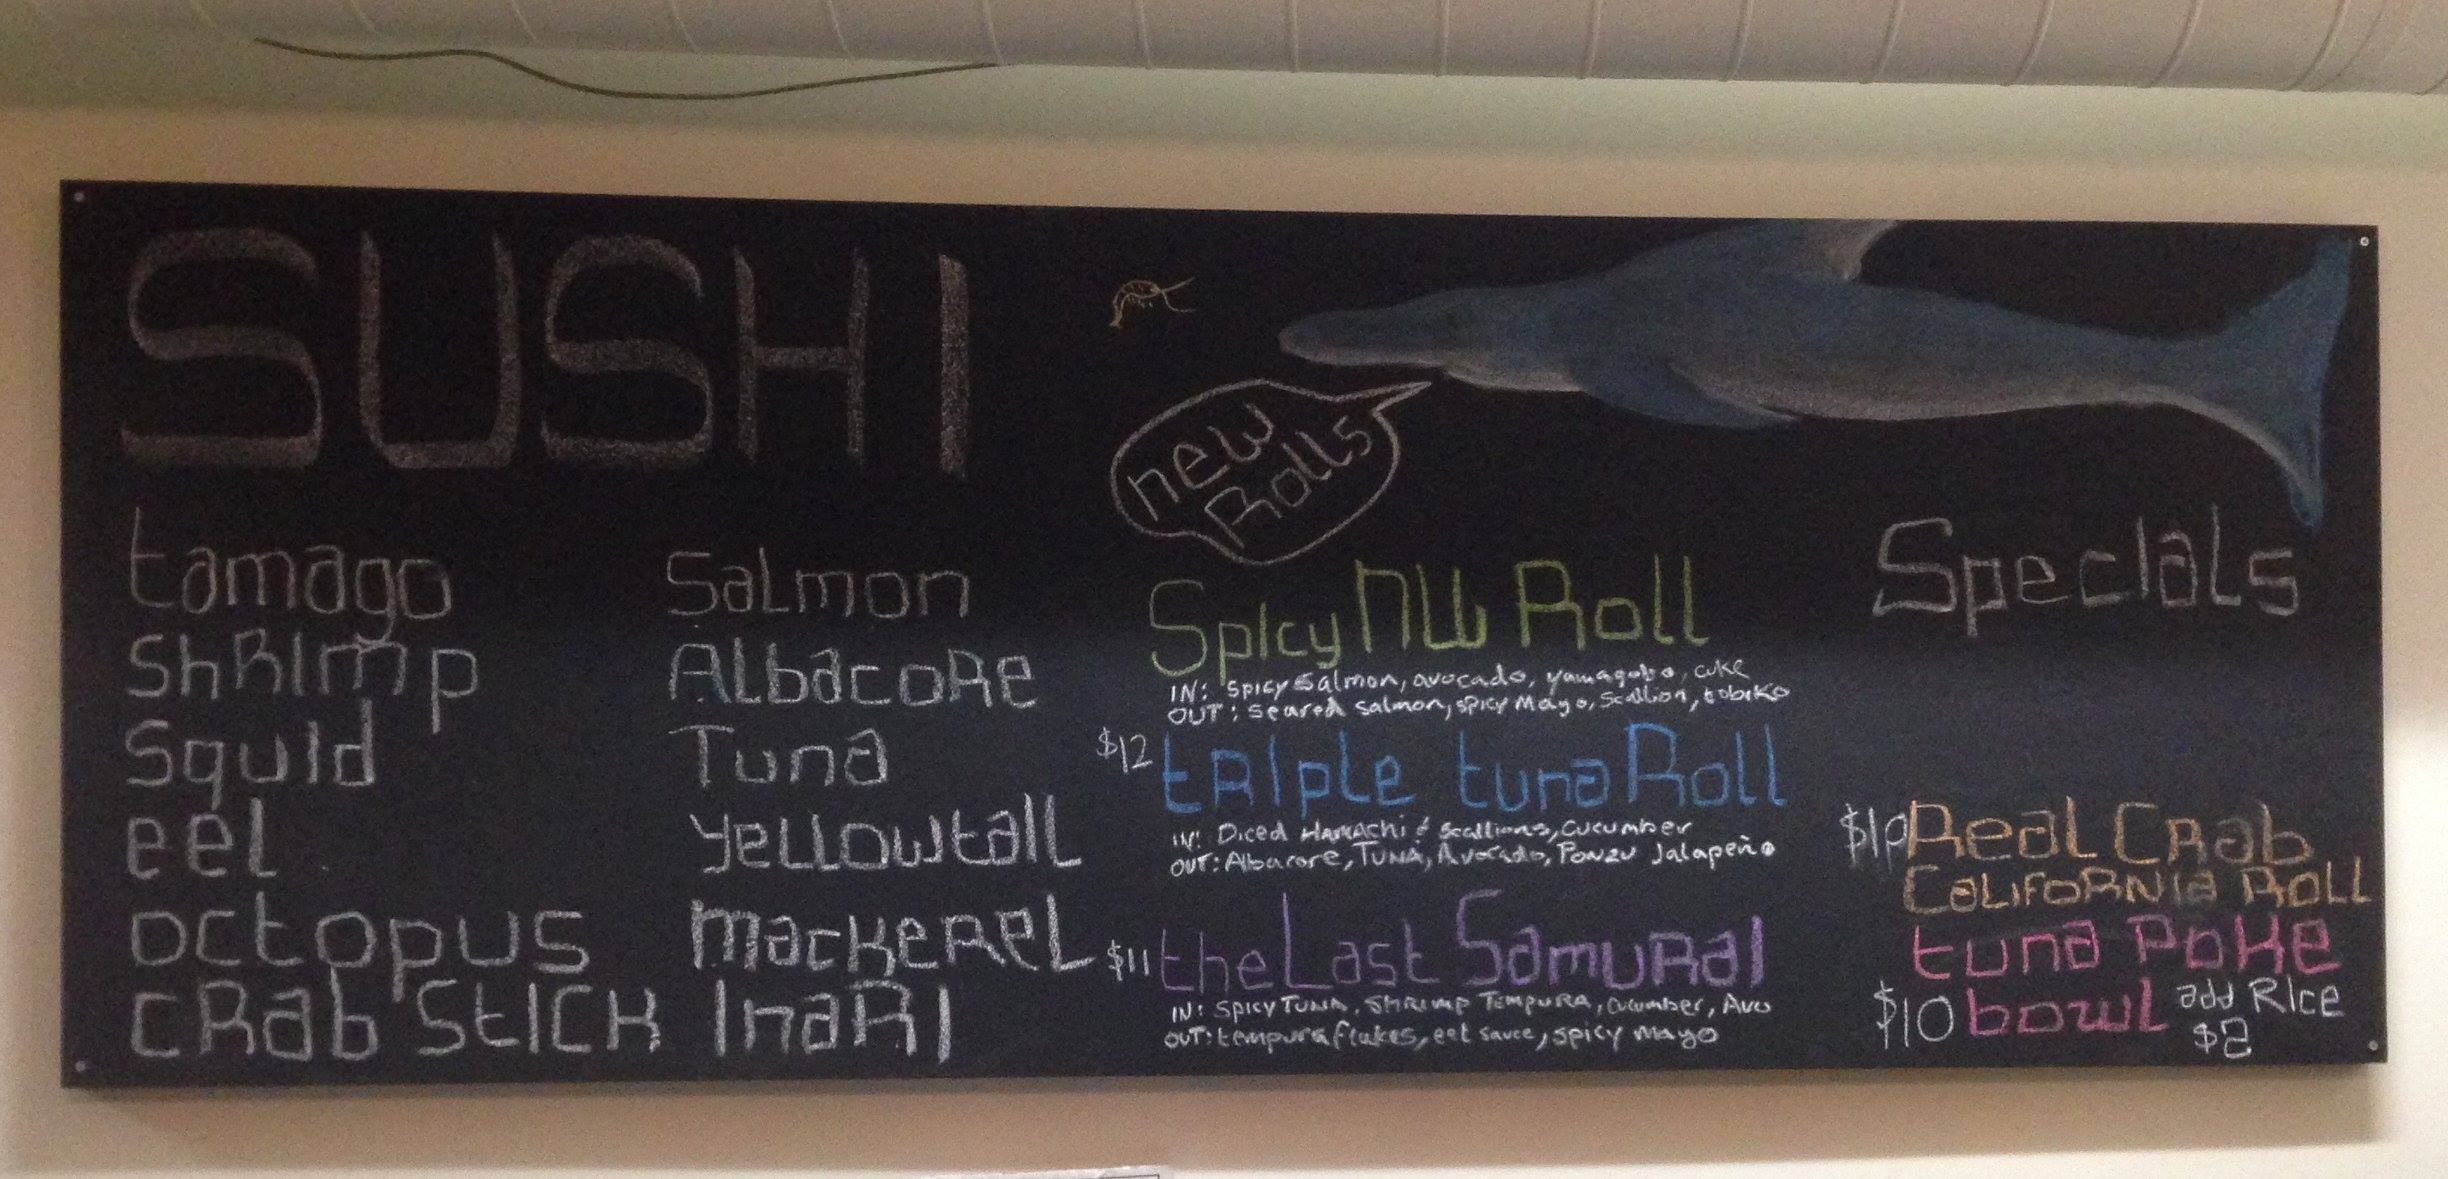 SUSHI
tamago
ShRImp
Squid
eel
octopus
CRab Stick
Salmon
AlbacoRe
Tuna
yellowtail
mackeRel
InaRI
new
Rolls
Spicy NW Roll
IN: spicy salmon, avocado, yamagobo, cuke
OUT: seared salmon, spicy Mayo, Scallion, tobiko
$12 tRiple tuna Roll
IN: Diced Hamachi & scallions, cucumber
OUT: Albacore, Tuna, Avocado, Ponzu Jalapeño
$11 the Last SamuRai
IN: Spicy Tuna, Shrimp Tempura, Cucumber, Avo
OUT: tempura flakes, eel sauce, spicy mayo
Specials
Real CRab
CaliFoRnia Roll
tuna Poke
$10 bowl add Rice
$2